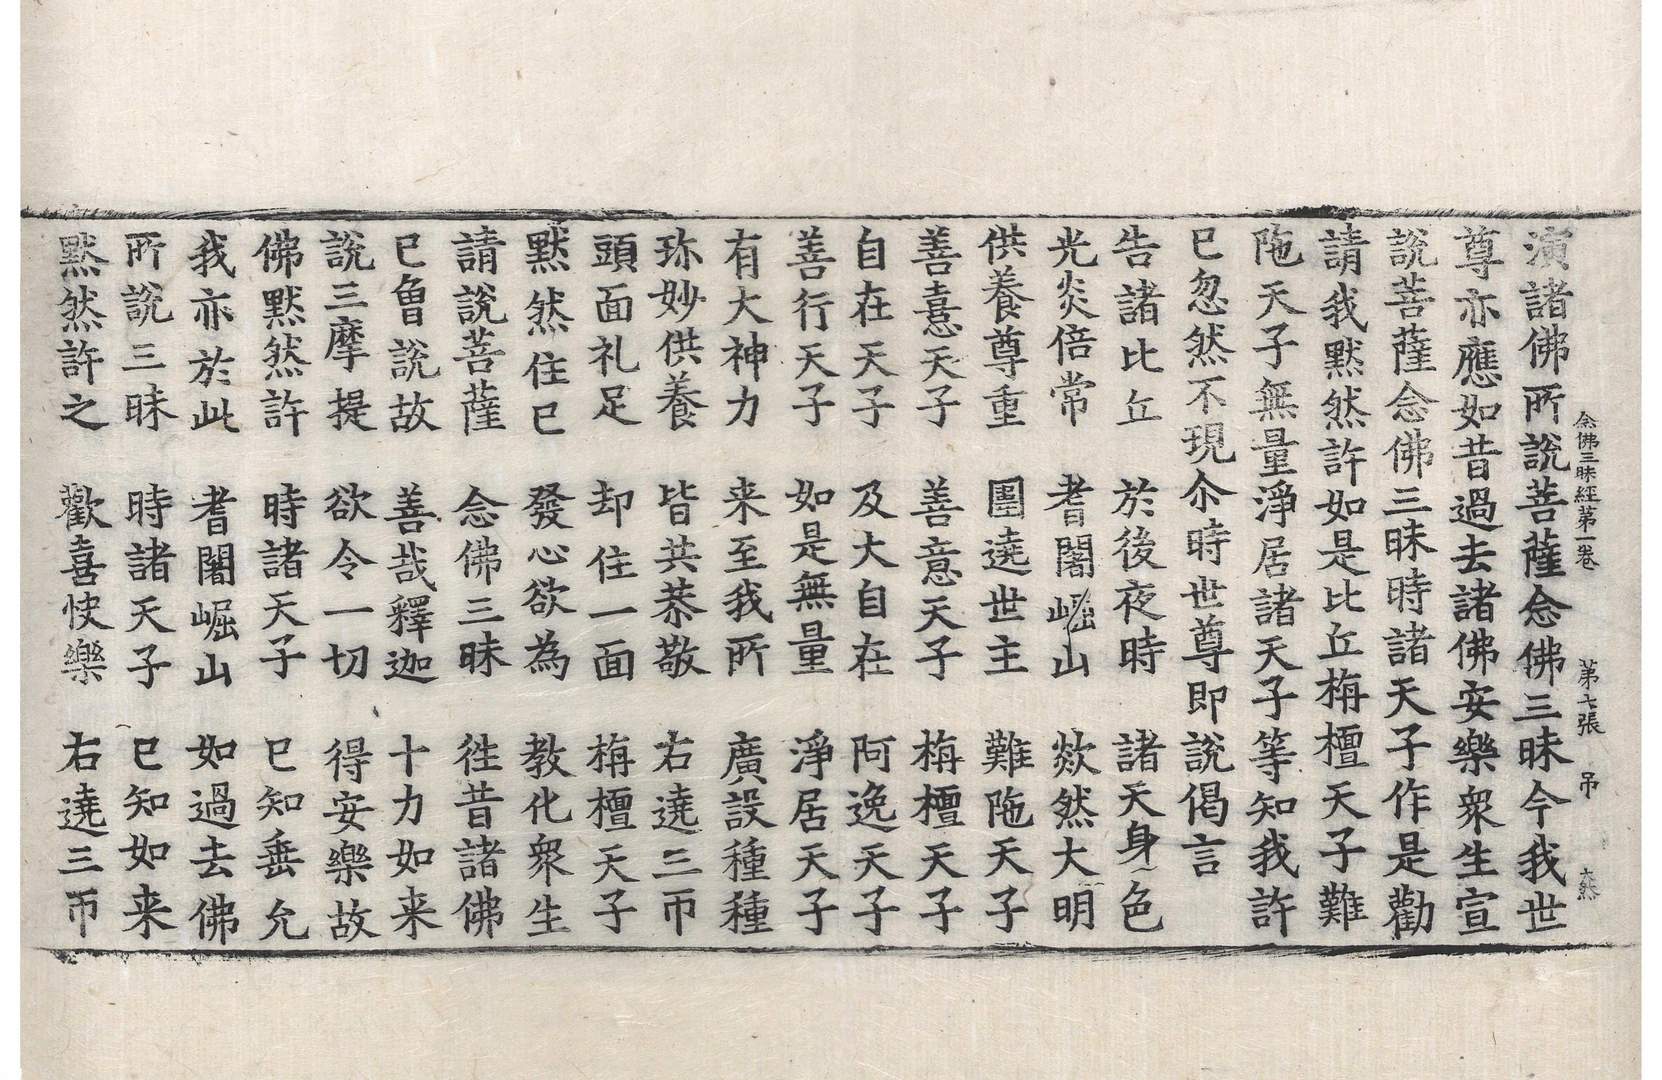 念佛三昧經第一卷　第七張　吊
演諸佛所說菩薩念佛三昧今我世
尊亦應如昔過去諸佛安樂衆生宣
說菩薩念佛三昧時諸天子作是勸
請我默然許如是比丘栴檀天子難
陁天子無量淨居諸天子等知我許
已忽然不現尒時世尊即說偈言
告諸比丘　於後夜時　諸天身色
光炎倍常　耆闍崛山　欻然大明
供養尊重　圍遶世主　難陁天子
善憙天子　善意天子　栴檀天子
自在天子　及大自在　阿逸天子
善行天子　如是無量　淨居天子
有大神力　来至我所　廣設種種
珎妙供養　皆共恭敬　右遶三帀
頭面礼足　却住一面　栴檀天子
默然住已　發心欲為　教化衆生
請說菩薩　念佛三昧　徃昔諸佛
已曾說故　善哉釋迦　十力如来
說三摩提　欲令一切　得安樂故
佛默然許　時諸天子　已知垂允
我亦於此　耆闍崛山　如過去佛
所說三昧　時諸天子　已知如来
默然許之　歡喜快樂　右遶三帀